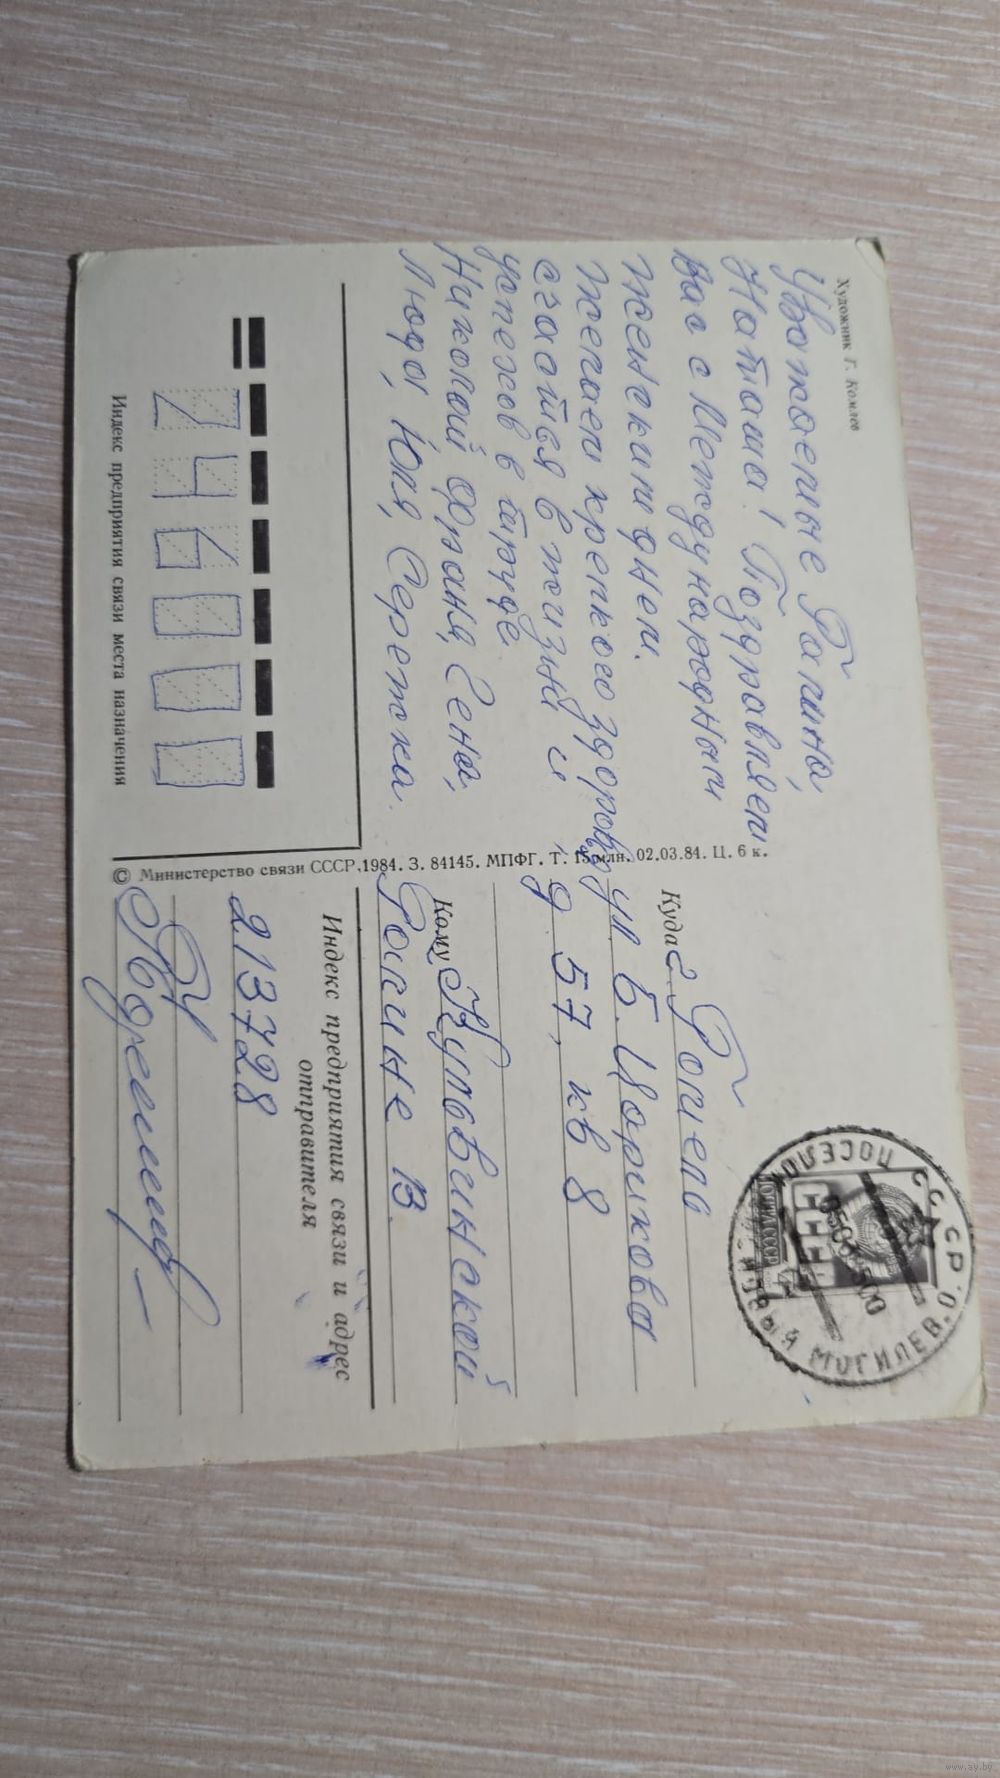 Художник Г. Комлев
Уважаемые Галина,
Наташа! Поздравляем
Вас с Международным
женским днем.
Желаем крепкого здоровья,
счастья в жизни и
успехов в труде.
Николай, Фузаня, Гена,
Люда, Юля, Сережка.
246000
Индекс предприятия связи места назначения
© Министерство связи СССР, 1984. З. 84145. МПФГ. Т. 15 млн. 02.03.84. Ц. 6 к.
СССР
ПОЧТА СССР
МОГИЛЕВ. О.
Куда г. Гомель
ул Б. Царикова
д 57, кв 8
Кому
Галине В.
Индекс предприятия связи и адрес
отправителя
213728
www.ay.by